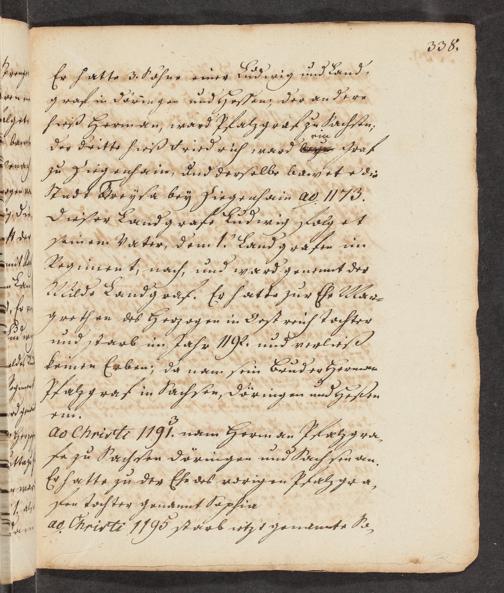 338.
Er hatte 3. Söhne einer Ludwig und Land,
graf in Döringen und Hessen, der andere
hieß Herman, ward Pfalzgraf zu Sachsen,
der dritte hieß Friedrich ward ein Graf
zu Ziegenhain, und derselbe bawete die
Stadt Treysa bey Ziegenhain ao 1173.
Dieser Landgraf Ludwig folget
seinem Vater, dem 1. Landgrafen im
Regiment, nach, und ward genennt der
Milde Landgraf. Er hatte zur Ehe Mar=
grethen des Herzogen in Oestreich tochter
und starb im Jahr 1191. und verließ
keinen Erben; da nam sein Bruder Herman
Pfalzgraf in Sachsen, Döringen und Hessen
ein.
ao Christi 1191. nam Herman Pfalzgra,
fe zu Sachsen Döringen und Sachsen an.
Er hatte zu der Ehe des vorigen Pfalzgra,
fen tochter genannt Sophia
ao. Christi 1195 starb itzt genannte So,